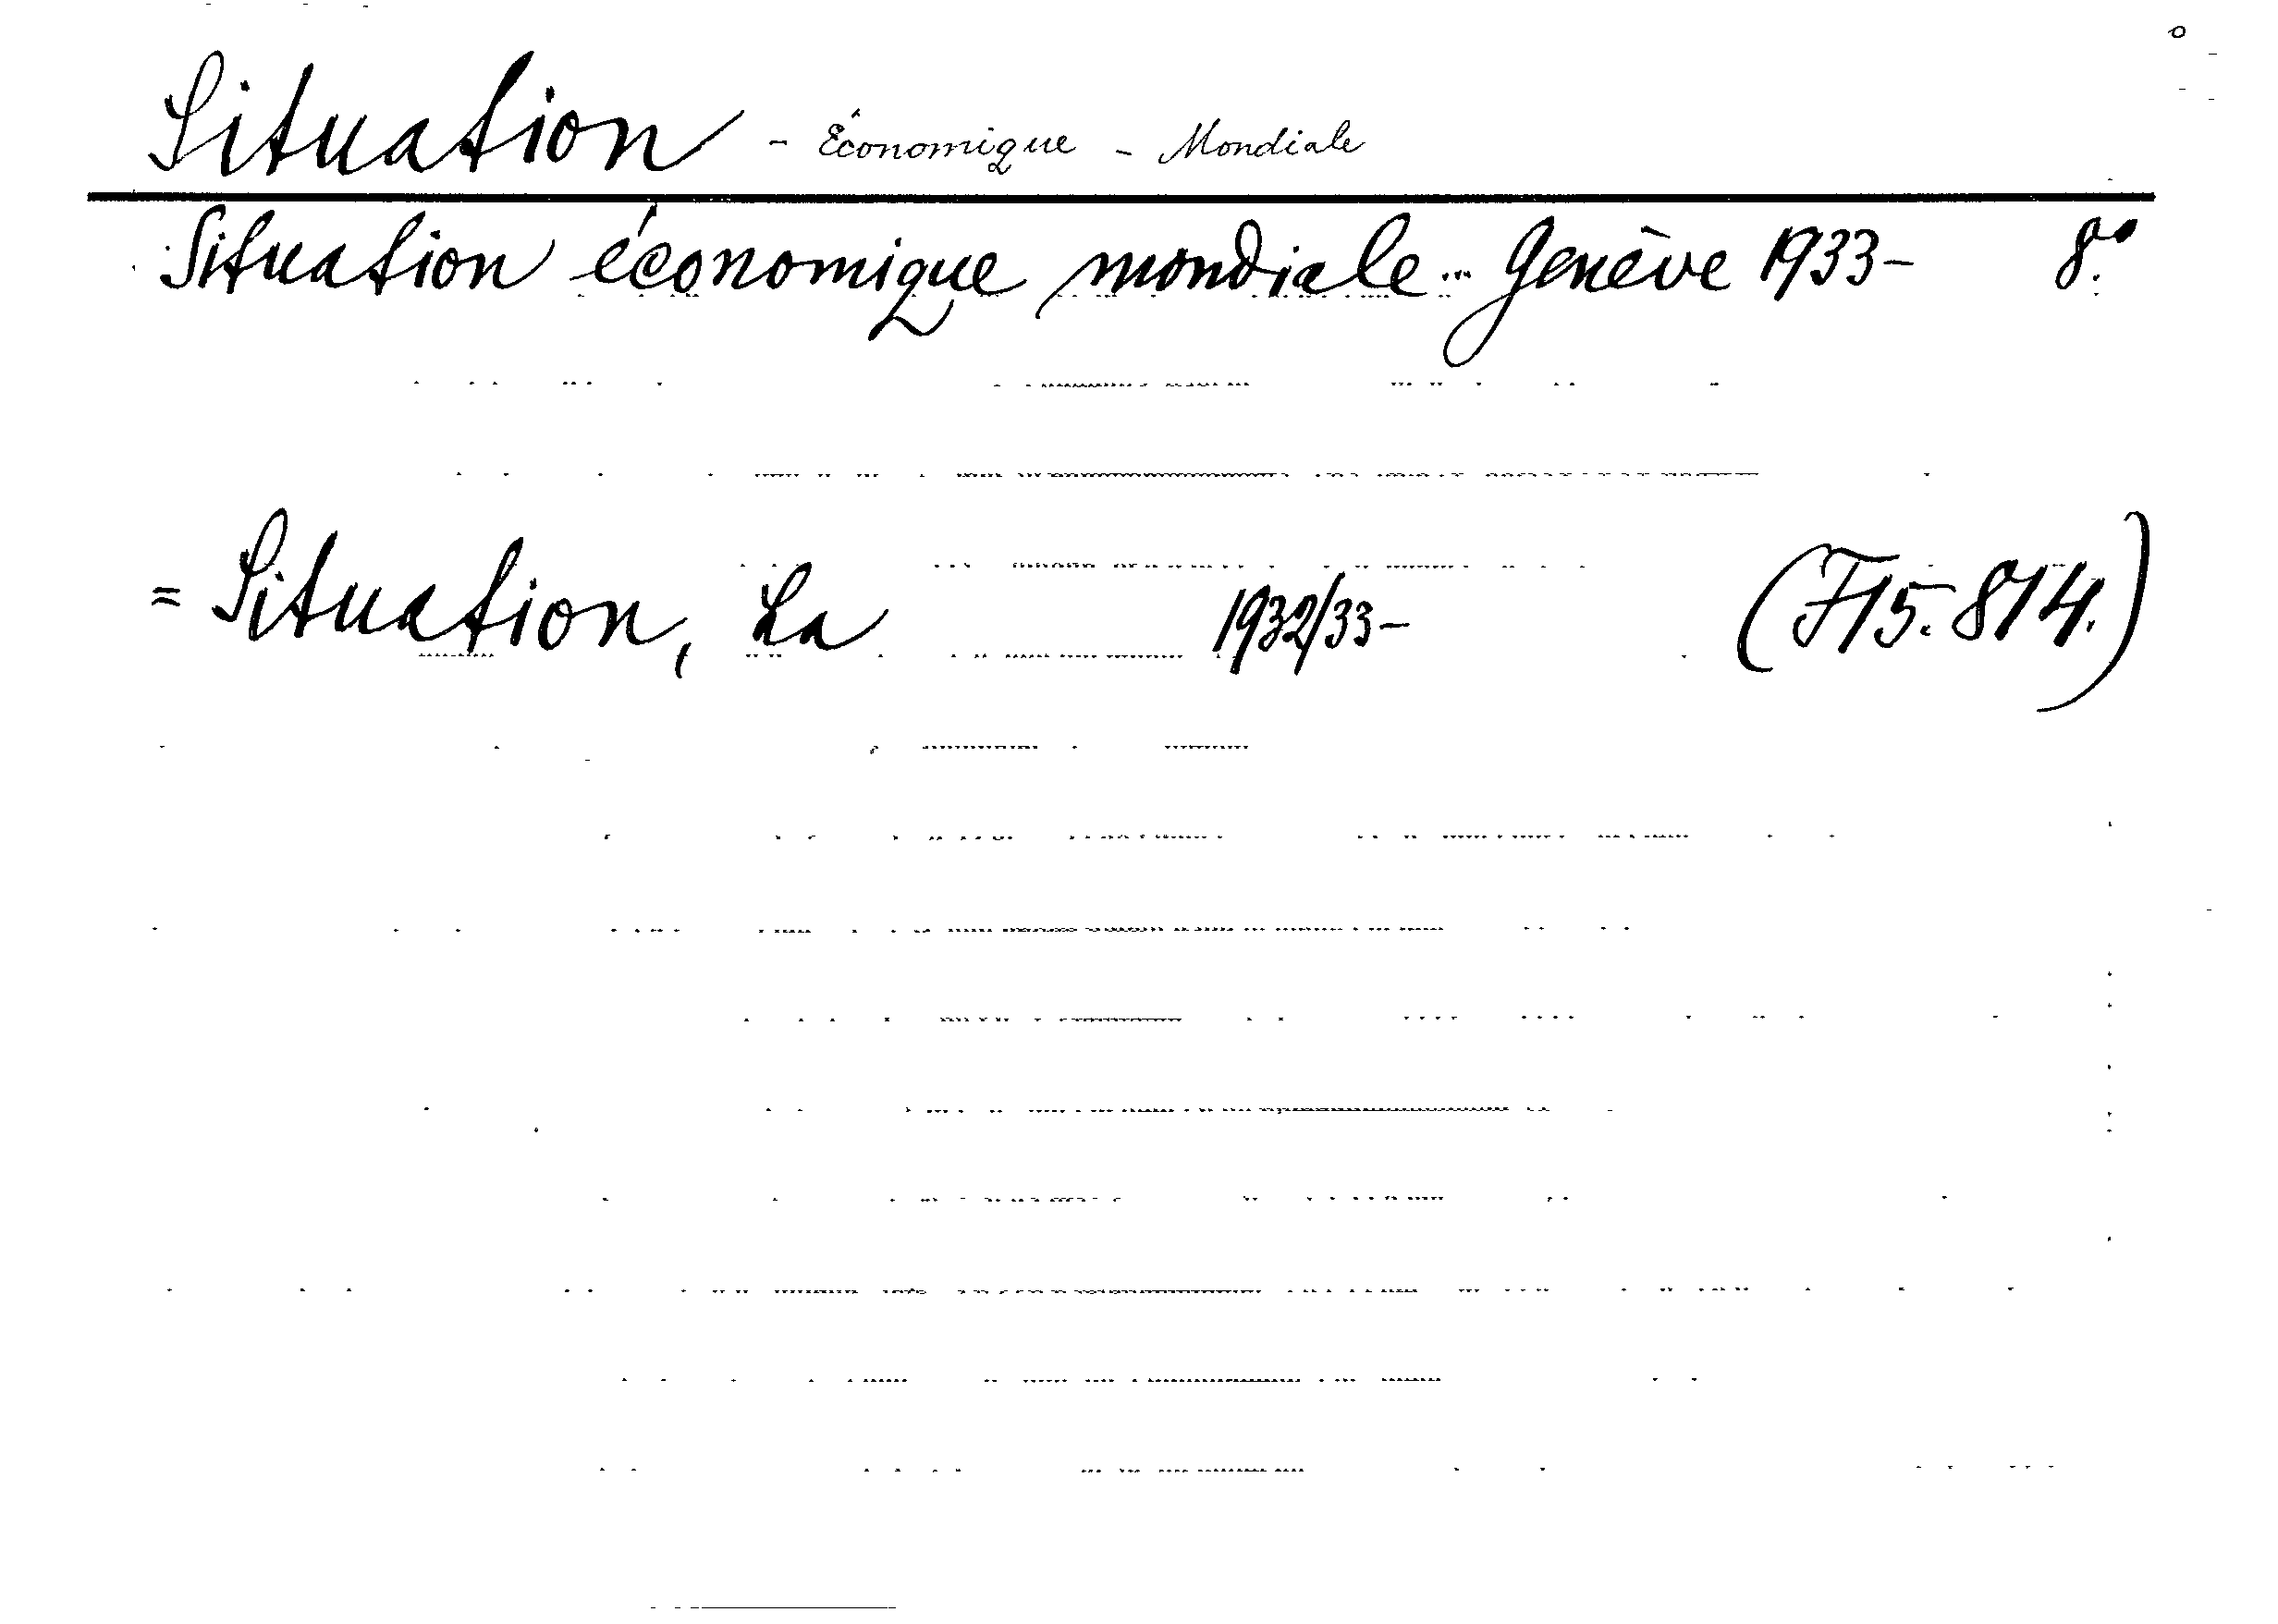 Situation - Économique - Mondiale
Situation économique mondiale... Genève 1933- 8º
= Situation, La 1932/33- (F15.814.)